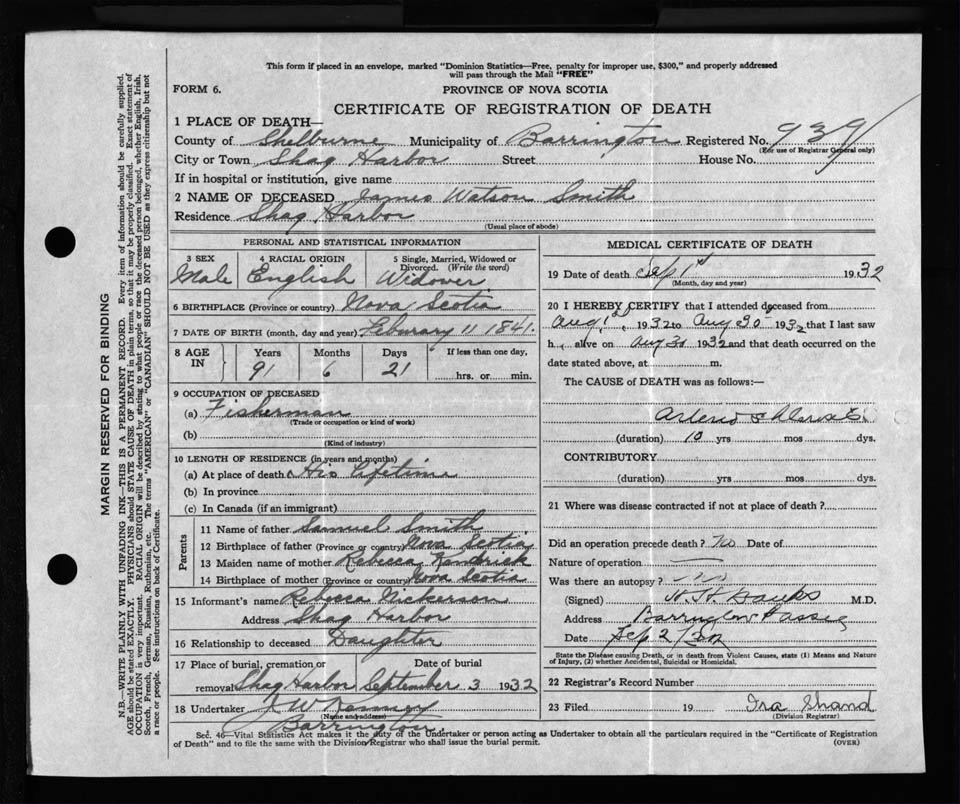 This form if placed in an envelope, marked "Dominion Statistics—Free, penalty for improper use, $300," and properly addressed
will pass through the Mail "FREE"
FORM 6.
PROVINCE OF NOVA SCOTIA
CERTIFICATE OF REGISTRATION OF DEATH
1 PLACE OF DEATH—
County of Shelburne Municipality of Barrington Registered No. 939
(For use of Registrar General only)
City or Town Shag Harbor Street House No.
If in hospital or institution, give name
2 NAME OF DECEASED James Watson Smith
Residence Shag Harbor
(Usual place of abode)
PERSONAL AND STATISTICAL INFORMATION
3 SEX 4 RACIAL ORIGIN 5 Single, Married, Widowed or
Divorced. (Write the word)
Male English Widower
6 BIRTHPLACE (Province or country) Nova Scotia
7 DATE OF BIRTH (month, day and year) Feburary 11 1841.
8 AGE IN Years Months Days If less than one day,
91 6 21 hrs. or min.
9 OCCUPATION OF DECEASED
(a) Fisherman
(Trade or occupation or kind of work)
(b)
(Kind of industry)
10 LENGTH OF RESIDENCE (in years and months)
(a) At place of death His Lifetime
(b) In province
(c) In Canada (if an immigrant)
Parents
11 Name of father Samuel Smith
12 Birthplace of father (Province or country) Nova Scotia
13 Maiden name of mother Rebecca Kendrick
14 Birthplace of mother (Province or country) Nova Scotia
15 Informant's name Rebecca Nickerson
Address Shag Harbor
16 Relationship to deceased Daughter
17 Place of burial, cremation or Date of burial
removal Shag Harbor September 3 1932
18 Undertaker J W Kenney
(Name and address)
Barrington
MEDICAL CERTIFICATE OF DEATH
19 Date of death Sep 1st 1932
(Month, day and year)
20 I HEREBY CERTIFY that I attended deceased from
Aug 1st, 1932 to Aug 30 1932 that I last saw
h alive on Aug 30 1932 and that death occurred on the
date stated above, at m.
The CAUSE of DEATH was as follows:—
(duration) 10 yrs mos dys.
CONTRIBUTORY
(duration) yrs mos dys.
21 Where was disease contracted if not at place of death?
Did an operation precede death? No Date of
Nature of operation
Was there an autopsy?
(Signed) H. H. Banks M.D.
Address Barrington Passage
Date Sep 2/32
State the Disease causing Death, or in death from Violent Causes, state (1) Means and Nature
of Injury, (2) whether Accidental, Suicidal or Homicidal.
22 Registrar's Record Number
23 Filed 19 Ira Shand
(Division Registrar)
Sec. 46—Vital Statistics Act makes it the duty of the Undertaker or person acting as Undertaker to obtain all the particulars required in the "Certificate of Registration
of Death" and to file the same with the Division Registrar who shall issue the burial permit.
(OVER)
MARGIN RESERVED FOR BINDING
N.B.—WRITE PLAINLY WITH UNFADING INK—THIS IS A PERMANENT RECORD. Every item of information should be carefully supplied.
AGE should be stated EXACTLY. PHYSICIANS should STATE CAUSE OF DEATH in plain terms, so that it may be properly classified. Exact statement of
OCCUPATION is very important. RACIAL ORIGIN will be described by stating to what people or race the deceased person belonged, whether English, Irish,
Scotch, French, German, Russian, Ruthenian, etc. The terms "AMERICAN" or "CANADIAN" SHOULD NOT BE USED as they express citizenship but not
a race or people. See instructions on back of Certificate.